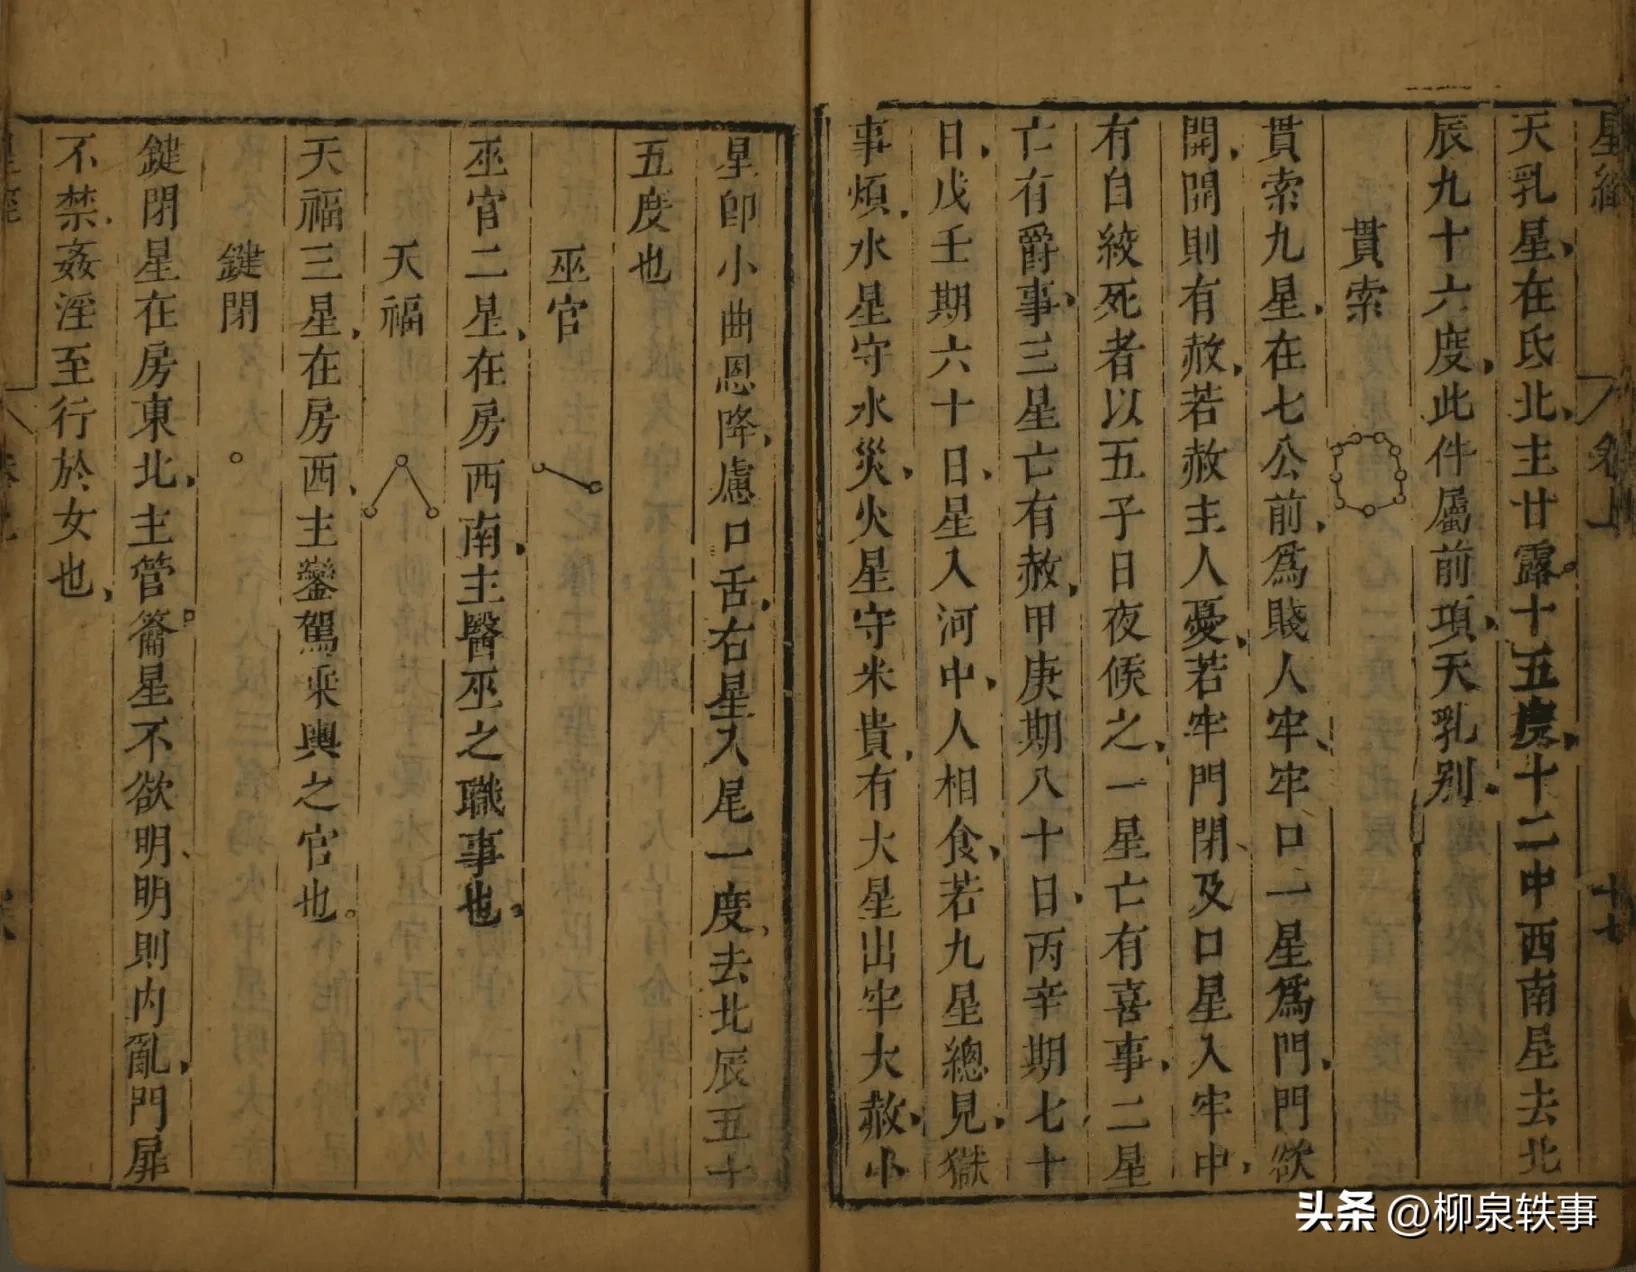 星經
卷上
十七
天乳星在氐北主甘露十五度十二中西南星去北
辰九十六度此件屬前項天乳別
貫索
貫索九星在七公前爲賤人牢牢口一星爲門門欲
開開則有赦若赦主人憂若牢門閉及口星入牢中
有自絞死者以五子日夜候之一星亡有喜事二星
亡有爵事三星亡有赦甲庚期八十日丙辛期七十
日戊壬期六十日星入河中人相食若九星總見獄
事煩水星守水災火星守米貴有大星出牢大赦小
星卽小曲恩降慮口舌右星入尾一度去北辰五十
五度也
巫官
巫官二星在房西南主醫巫之職事也
天福
天福三星在房西主鑾駕乘輿之官也
鍵閉
鍵閉星在房東北主管籥星不欲明明則內亂門扉
不禁姦淫至行於女也
头条 @柳泉轶事